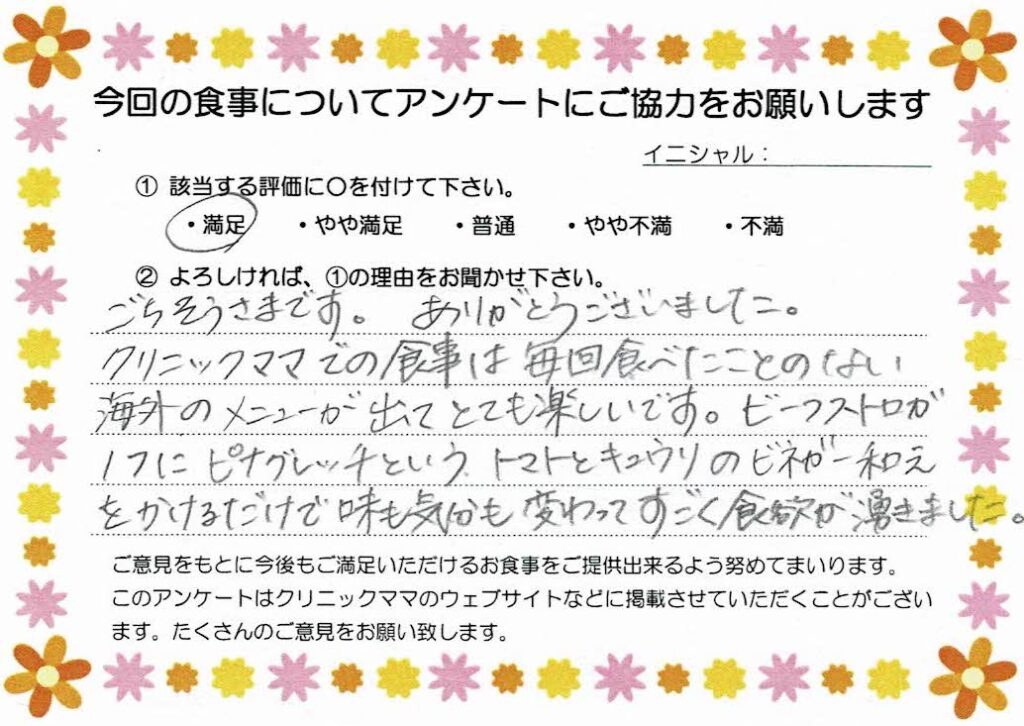 今回の食事についてアンケートにご協力をお願いします
イニシャル：
① 該当する評価に〇を付けて下さい。
・満足 ・やや満足 ・普通 ・やや不満 ・不満
② よろしければ、①の理由をお聞かせ下さい。
ごちそうさまです。 ありがとうございました。
クリニックママでの食事は毎回食べたことのない
海外のメニューが出てとても楽しいです。ビーフストロガ
ノフにピナグレッチという、トマトとキュウリのビネガー和え
をかけるだけで味も気分も変わってすごく食欲が湧きました。
ご意見をもとに今後もご満足いただけるお食事をご提供出来るよう努めてまいります。
このアンケートはクリニックママのウェブサイトなどに掲載させていただくことがござい
ます。たくさんのご意見をお願い致します。